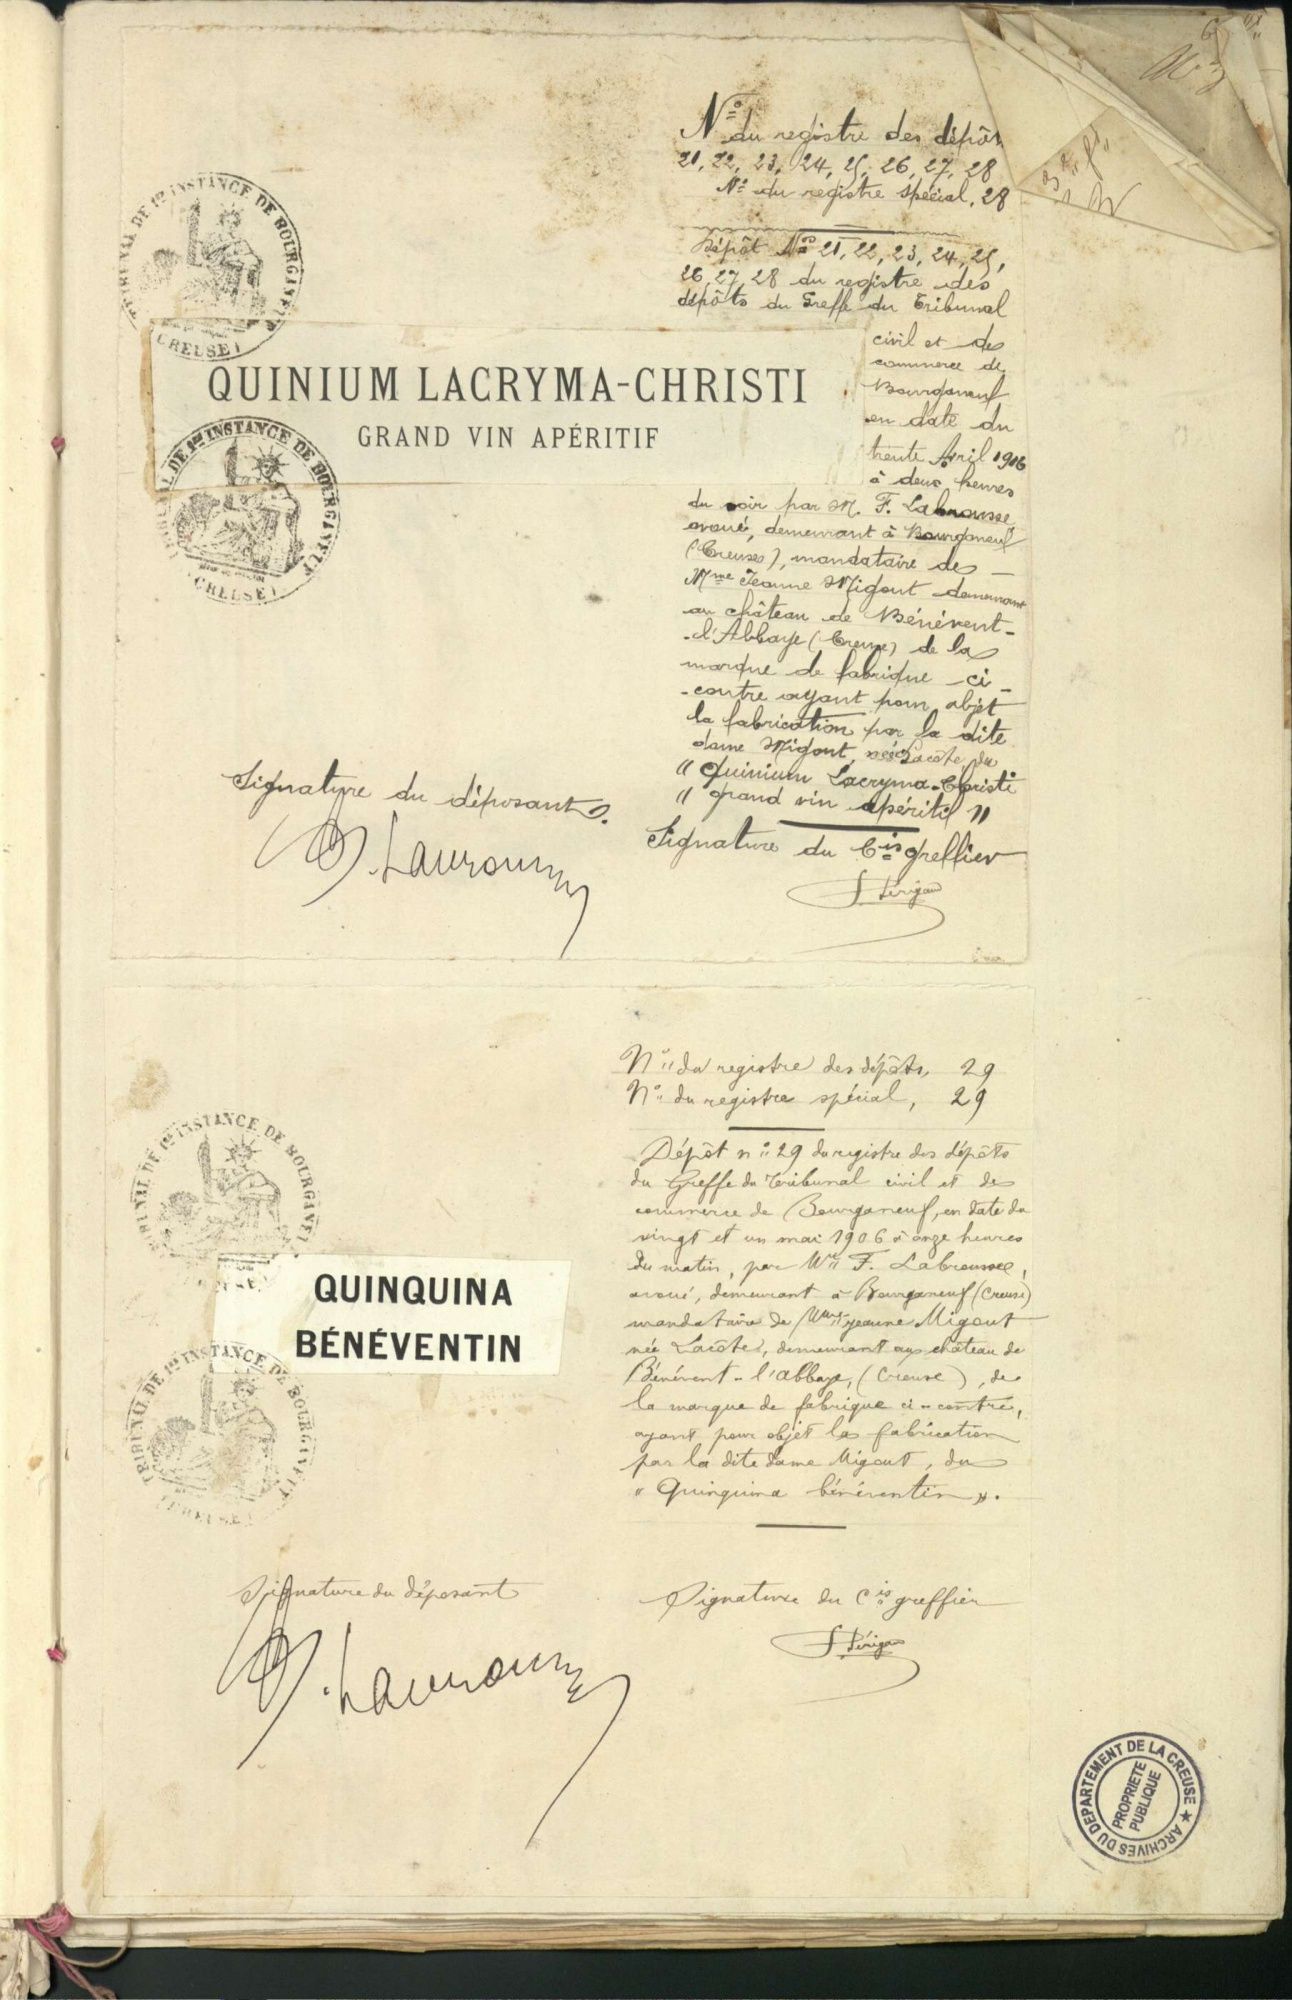 N° du registre des dépôts
21, 22, 23, 24, 25, 26, 27, 28
N° du registre spécial, 28
Dépôt Nos 21, 22, 23, 24, 25,
26, 27, 28 du registre des
dépôts du Greffe du Tribunal
civil et de
commerce de
Bourganeuf
en date du
trente Avril 1906
à deux heures
du soir par M. F. Labrousse
avoué, demeurant à Bourganeuf
(Creuse), mandataire de
Mme Jeanne Migout demeurant
au château de Bénévent-
-l'Abbaye (Creuse) de la
marque de fabrique ci-
-contre ayant pour objet
la fabrication par la dite
dame Migout, née Lacôte, du
" Quinium Lacryma-Christi
" grand vin apéritif "
TRIBUNAL DE 1re INSTANCE DE BOURGANEUF
(CREUSE)
QUINIUM LACRYMA-CHRISTI
GRAND VIN APÉRITIF
TRIBUNAL DE 1re INSTANCE DE BOURGANEUF
(CREUSE)
Signature du déposant
Signature du Cis greffier
N° du registre des dépôts, 29
N° du registre spécial, 29
Dépôt n° 29 du registre des dépôts
du Greffe du Tribunal civil et de
commerce de Bourganeuf, en date du
vingt et un mai 1906 à onze heures
du matin, par Me F. Labrousse,
avoué, demeurant à Bourganeuf (Creuse)
mandataire de Mme Jeanne Migout
née Lacôte, demeurant au château de
Bénévent-l'abbaye, (Creuse), de
la marque de fabrique ci-contre,
ayant pour objet la fabrication
par la dite dame Migout, du
« Quinquina bénéventin ».
TRIBUNAL DE 1re INSTANCE DE BOURGANEUF
(CREUSE)
QUINQUINA
BÉNÉVENTIN
TRIBUNAL DE 1re INSTANCE DE BOURGANEUF
(CREUSE)
Signature du déposant
Signature du Cis greffier
ARCHIVES DU DEPARTEMENT DE LA CREUSE ★
PROPRIETE
PUBLIQUE